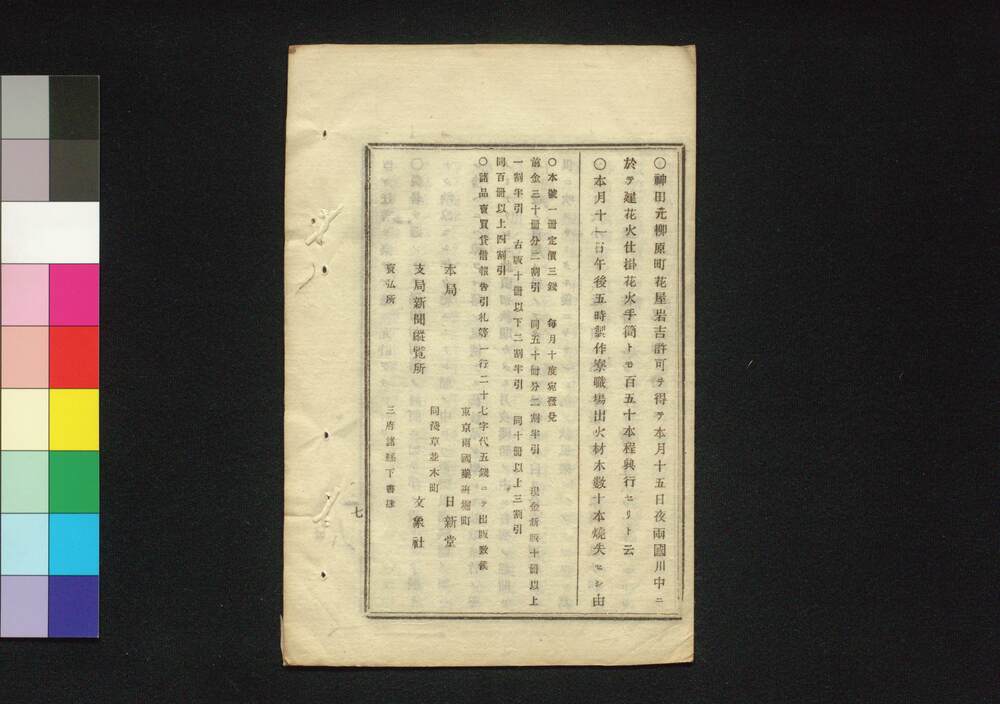 〇神田元柳原町花屋岩吉許可ヲ得テ本月十五日夜兩國川中ニ
於テ建花火仕掛花火手筒トモ百五十本程興行セリト云
〇本月十一日午後五時製作寮職場出火材木數十本燒失セシ由
〇本號一冊定價三錢 毎月十度宛發兌
前金三十冊分二割引 同五十冊分二割半引 現金新版十冊以上
一割半引 古版十冊以下二割半引 同十冊以上三割引
同百冊以上四割引
〇諸品賣買貸借報告引札等一行二十七字代五錢ニテ出版致候
東京兩國藥研堀町
本局 日新堂
同淺草並木町
支局新聞縱覧所 文象社
賣弘所 三府諸縣下書肆
七